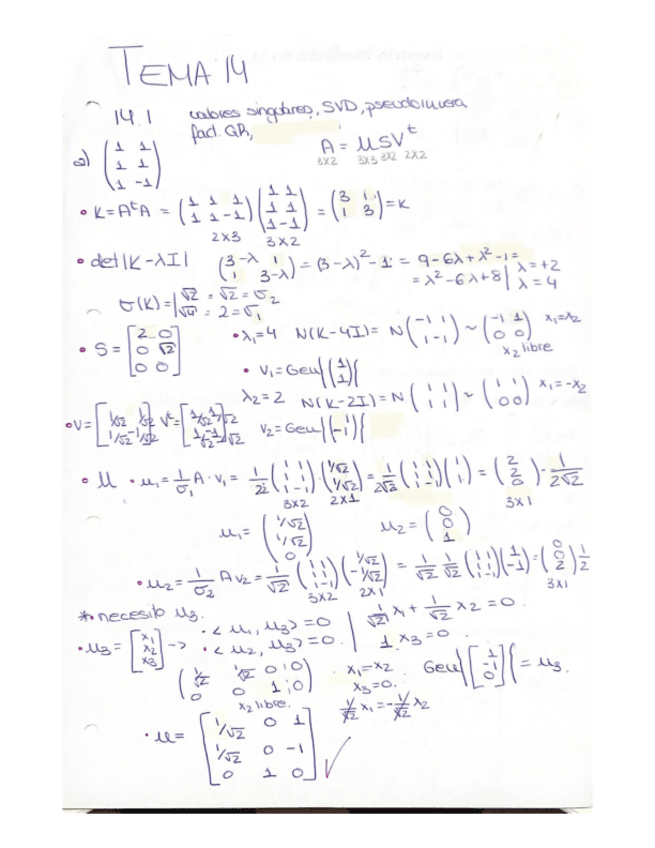 TEMA 14
14.1 valores singulares, SVD, pseudoinversa
fact. QR,
A = USV^t
3x2 3x3 3x2 2x2
a) (1 1; 1 1; 1 -1)
• K = A^tA = (1 1 1; 1 1 -1) (1 1; 1 1; 1 -1) = (3 1; 1 3) = K
2x3 3x2
• det|K - λI| (3-λ 1; 1 3-λ) = (3-λ)² - 1 = 9 - 6λ + λ² - 1 =
= λ² - 6λ + 8 | λ = +2
λ = 4
σ(K) = | √2 = √2 = σ₂
√4 = 2 = σ₁
• S = [2 0; 0 √2; 0 0]
• λ₁ = 4 N(K-4I) = N(-1 1; 1 -1) ~ (-1 1; 0 0) x₁=x₂
x₂ libre
• V₁ = Gen{(1; 1)}
λ₂ = 2 N(K-2I) = N(1 1; 1 1) ~ (1 1; 0 0) x₁=-x₂
• V = [1/√2 1/√2; 1/√2 -1/√2] V^t = [1/√2 1/√2; 1/√2 -1/√2] V₂ = Gen{(1; -1)}
• U • u₁ = 1/σ₁ A · v₁ = 1/2 (1 1; 1 1; 1 -1) · (1/√2; 1/√2) = 1/2√2 (1 1; 1 1; 1 -1) (1; 1) = (2; 2; 0) · 1/2√2
3x2 2x1 3x1
u₁ = (1/√2; 1/√2; 0) u₂ = (0; 0; 1)
• u₂ = 1/σ₂ A v₂ = 1/√2 (1 1; 1 1; 1 -1) (1/√2; -1/√2) = 1/√2 1/√2 (1 1; 1 1; 1 -1) (1; -1) = (0; 0; 2) 1/2
3x2 2x1 3x1
* necesito u₃.
• u₃ = [x₁; x₂; x₃] -> • < u₁, u₃ > = 0 | 1/√2 x₁ + 1/√2 x₂ = 0.
• < u₂, u₃ > = 0. | 1 x₃ = 0.
(1/√2 1/√2 0 | 0; 0 0 1 | 0) x₁=x₂ Gen{[1; -1; 0]} = u₃.
x₃=0.
x₂ libre. 1/√2 x₁ = -1/√2 x₂
• U = [1/√2 0 1; 1/√2 0 -1; 0 1 0] ✓